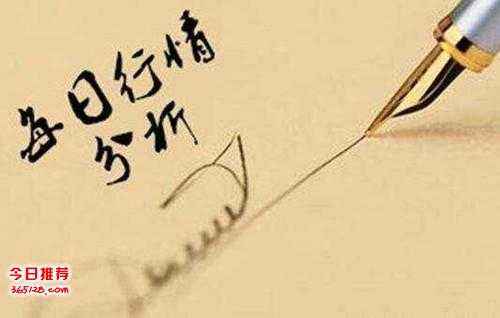 每日行情
分析
今日推荐
365128.com